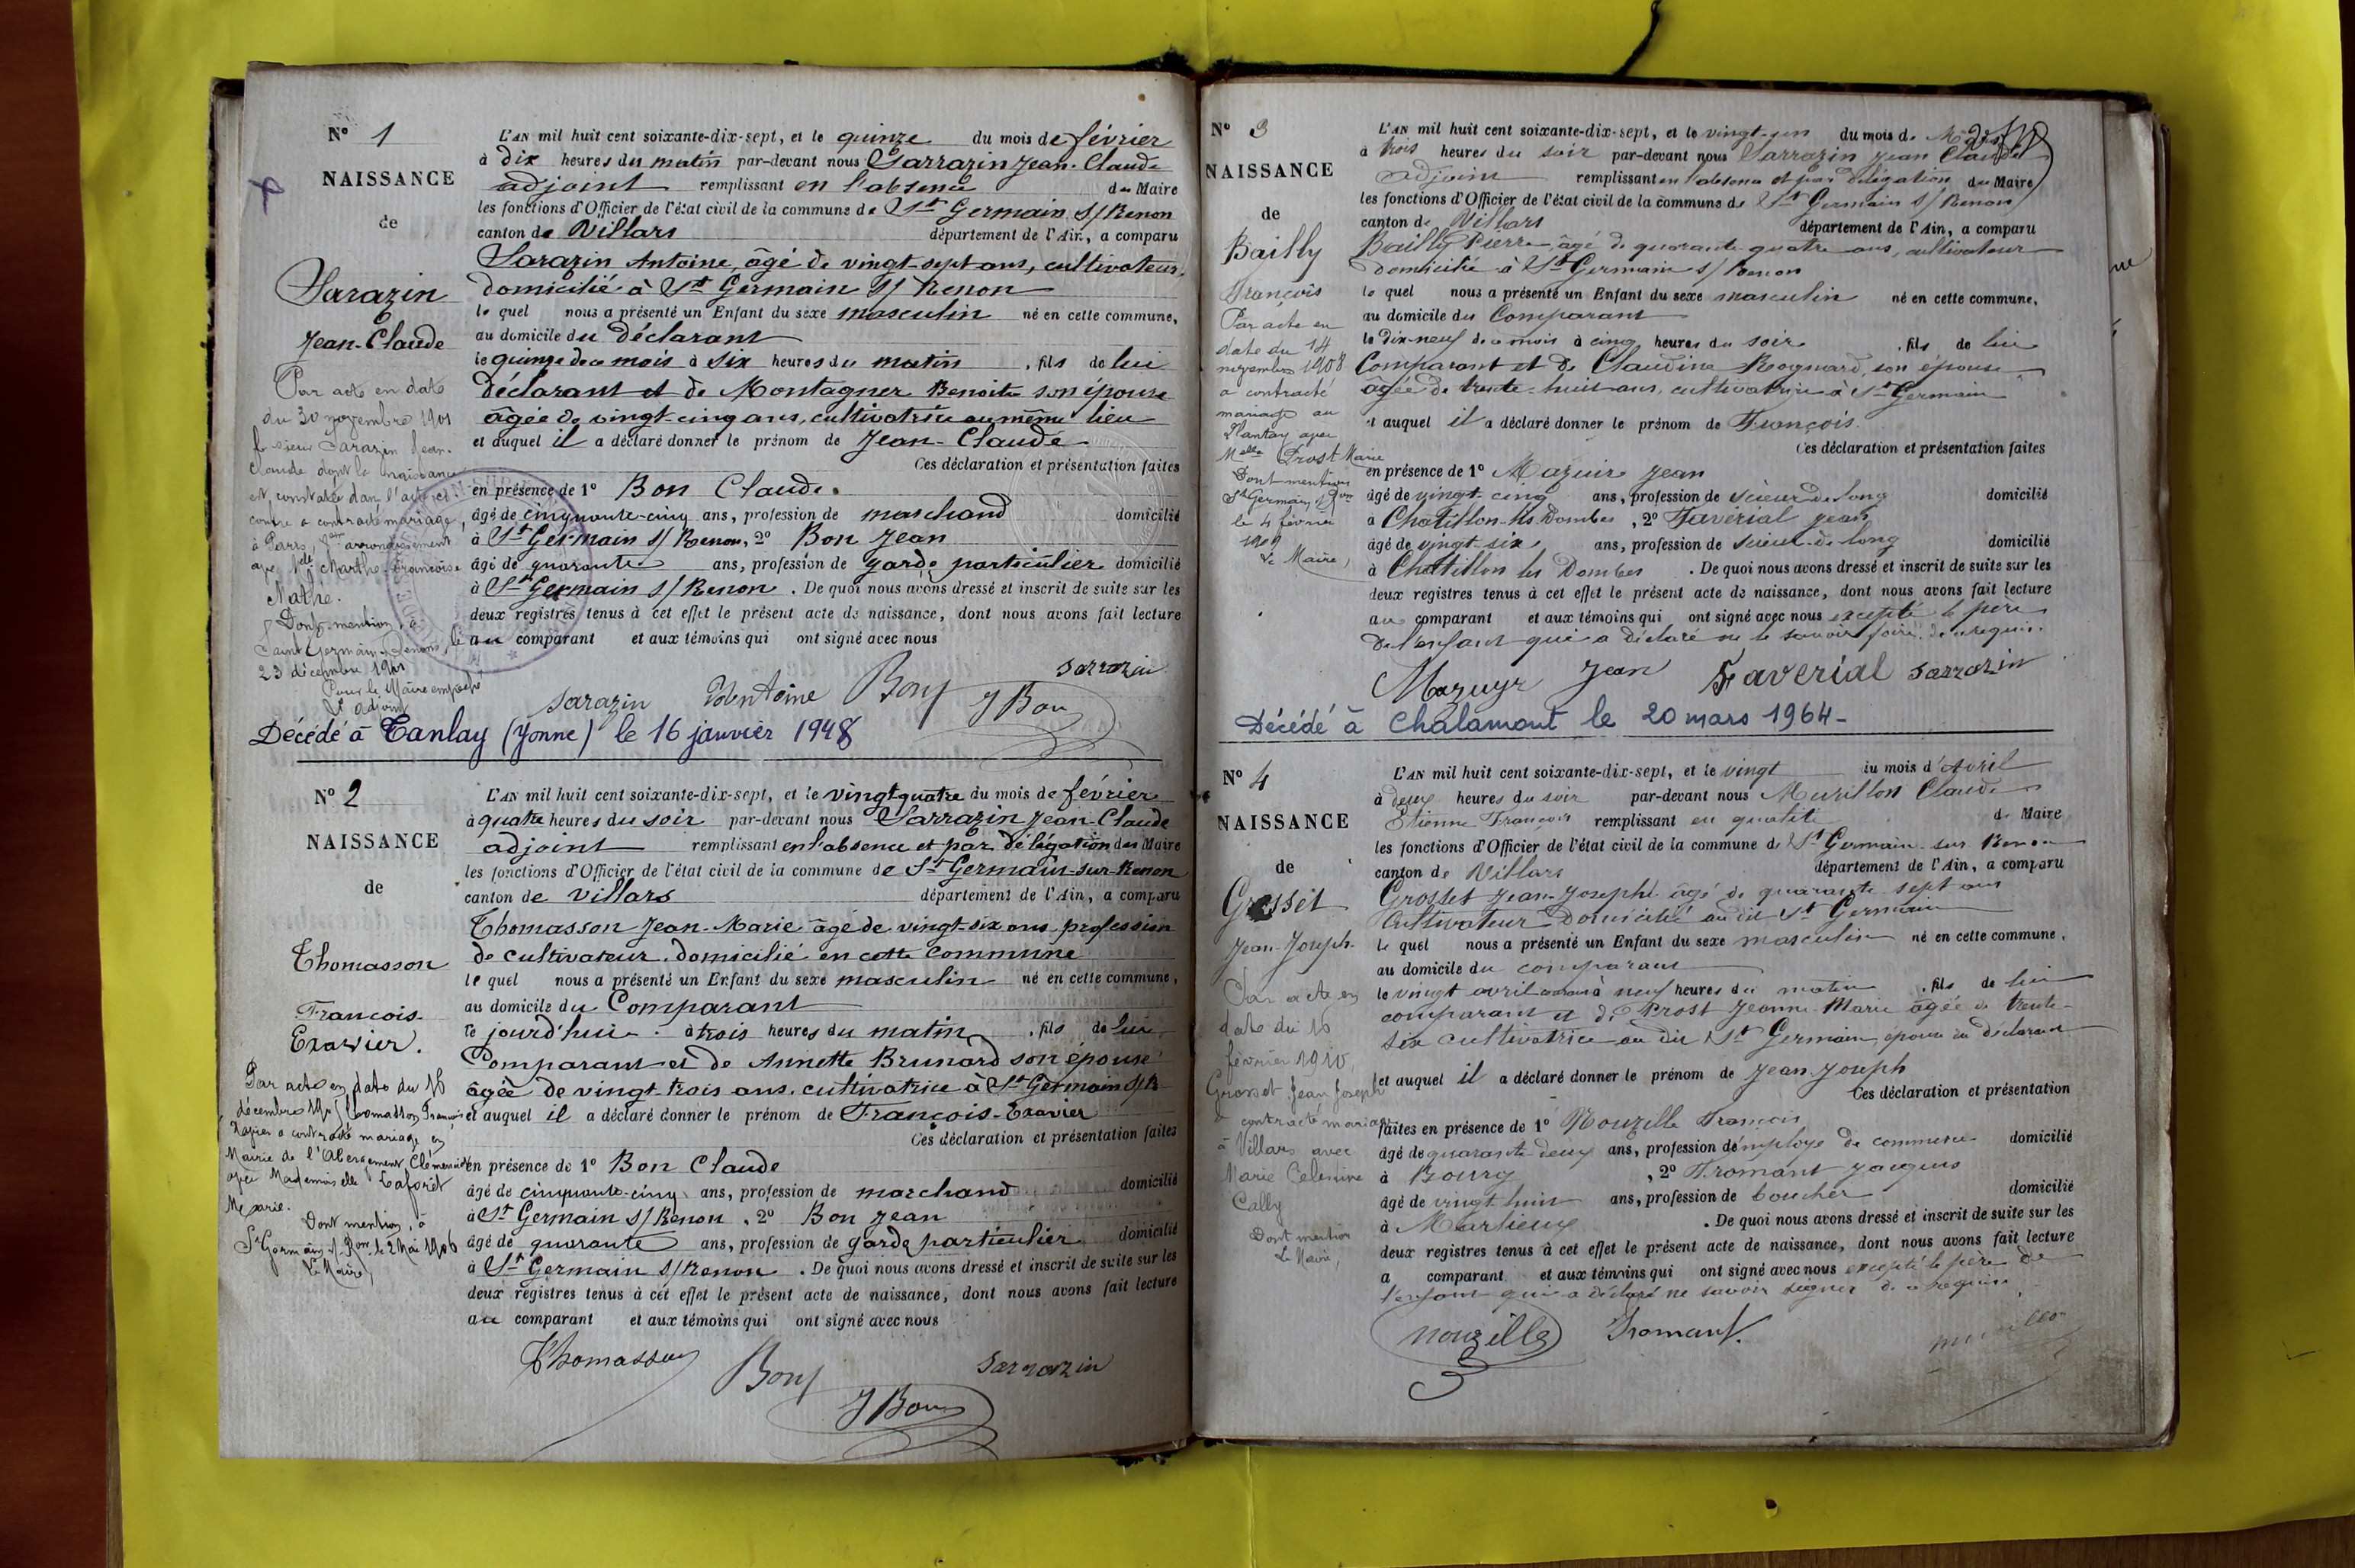 N° 1
NAISSANCE
de
Sarazin
Jean-Claude
Par acte en date
du 30 novembre 1901
le sieur Sarazin Jean-
Claude dont la naissance
est constatée dans l'acte ci-
contre a contracté mariage,
à Paris, arrondissement
avec Melle Marthe Françoise
Nathe.
Dont mention, à
Saint Germain s/ Renon, le
23 décembre 1901
Pour le Maire empêché
L'adjoint
L'AN mil huit cent soixante-dix-sept, et le quinze du mois de février
à dix heures du matin par-devant nous Sarrazin Jean-Claude
adjoint remplissant en l'absence du Maire
les fonctions d'Officier de l'état civil de la commune de St Germain s/ Renon
canton de Villars département de l'Ain, a comparu
Sarazin Antoine, âgé de vingt-sept ans, cultivateur,
domicilié à St Germain s/ Renon
le quel nous a présenté un Enfant du sexe masculin né en cette commune,
au domicile du déclarant
le quinze de ce mois à six heures du matin, fils de lui
déclarant et de Montagner Benoite son épouse
âgée de vingt-cinq ans, cultivatrice au même lieu
et auquel il a déclaré donner le prénom de Jean-Claude
Ces déclaration et présentation faites
en présence de 1° Bon Claude.
âgé de cinquante-cinq ans, profession de marchand domicilié
à St Germain s/ Renon, 2° Bon Jean
âgé de quarante ans, profession de garde particulier domicilié
à St Germain s/ Renon. De quoi nous avons dressé et inscrit de suite sur les
deux registres tenus à cet effet le présent acte de naissance, dont nous avons fait lecture
au comparant et aux témoins qui ont signé avec nous
Sarrazin
Sarazin Antoine Bon J Bon
Décédé à Tanlay (Yonne) le 16 janvier 1948
N° 2
NAISSANCE
de
Thomasson
François-
Exavier.
Par acte en date du 16
décembre 1905 Thomasson François
Xavier a contracté mariage en
Mairie de l'Abergement Clémenciat
avec Mademoiselle Laforêt
Marie.
Dont mention, à
St Germain s/ Ron le 2 Mai 1906
Le Maire,
L'AN mil huit cent soixante-dix-sept, et le vingt quatre du mois de février
à quatre heures du soir par-devant nous Sarrazin Jean-Claude
adjoint remplissant en l'absence et par délégation du Maire
les fonctions d'Officier de l'état civil de la commune de St Germain-sur-Renon
canton de Villars département de l'Ain, a comparu
Thomasson Jean-Marie âgé de vingt-six ans profession
de cultivateur domicilié en cette commune
le quel nous a présenté un Enfant du sexe masculin né en cette commune,
au domicile du Comparant
le jourd'hui à trois heures du matin, fils de lui
Comparant et de Annette Brunard son épouse
âgée de vingt-trois ans, cultivatrice à St Germain s/ R-
et auquel il a déclaré donner le prénom de François-Exavier
Ces déclaration et présentation faites
en présence de 1° Bon Claude
âgé de cinquante-cinq ans, profession de marchand domicilié
à St Germain s/ Renon, 2° Bon Jean
âgé de quarante ans, profession de garde particulier domicilié
à St Germain s/ Renon. De quoi nous avons dressé et inscrit de suite sur les
deux registres tenus à cet effet le présent acte de naissance, dont nous avons fait lecture
au comparant et aux témoins qui ont signé avec nous
Thomasson Bon Sarrazin
J Bon
N° 3
NAISSANCE
de
Bailly
François
Par acte en
date du 14
novembre 1908
a contracté
mariage au
Plantay avec
Melle Prost Marie
Dont mention
St Germain s/ Ron
le 4 février
1909
Le Maire,
L'AN mil huit cent soixante-dix-sept, et le vingt-un du mois de Mars
à trois heures du soir par-devant nous Sarrazin Jean Claude
adjoint remplissant en l'absence et par délégation du Maire
les fonctions d'Officier de l'état civil de la commune de St Germain s/ Renon
canton de Villars département de l'Ain, a comparu
Bailly Pierre, âgé de quarante quatre ans, cultivateur
domicilié à St Germain s/ Renon
le quel nous a présenté un Enfant du sexe masculin né en cette commune,
au domicile du Comparant
le dix-neuf de ce mois à cinq heures du soir, fils de lui
Comparant et de Claudine Rognard, son épouse
âgée de trente-huit ans, cultivatrice à St Germain
et auquel il a déclaré donner le prénom de François.
Ces déclaration et présentation faites
en présence de 1° Mazuir Jean
âgé de vingt-cinq ans, profession de scieur de long domicilié
à Chatillon-les-Dombes, 2° Faverial Jean
âgé de vingt-six ans, profession de scieur-de-long domicilié
à Chatillon les Dombes. De quoi nous avons dressé et inscrit de suite sur les
deux registres tenus à cet effet le présent acte de naissance, dont nous avons fait lecture
au comparant et aux témoins qui ont signé avec nous excepté le père
de l'enfant qui a déclaré ne le savoir faire de ce requis.
Mazuyr Jean Faverial Sarrazin
Décédé à Chalamont le 20 mars 1964-
N° 4
NAISSANCE
de
Grosset
Jean-Joseph
Par acte en
date du 16
février 1910,
Grosset Jean Joseph
a contracté mariage
à Villars avec
Marie Celestine
Cally
Dont mention
Le Maire,
L'AN mil huit cent soixante-dix-sept, et le vingt du mois d'Avril
à deux heures du soir par-devant nous Murillon Claude
Etienne François remplissant en qualité de Maire
les fonctions d'Officier de l'état civil de la commune de St Germain sur Renon
canton de Villars département de l'Ain, a comparu
Grosset Jean-Joseph âgé de quarante sept ans
Cultivateur Domicilié au dit St Germain
le quel nous a présenté un Enfant du sexe masculin né en cette commune,
au domicile du comparant
le vingt avril à neuf heures du matin, fils de lui
comparant et de Prost Jeanne Marie âgée de trente-
six cultivatrice au dit St Germain, épouse du déclarant
et auquel il a déclaré donner le prénom de Jean-Joseph
Ces déclaration et présentation
faites en présence de 1° Nouzille François
âgé de quarante deux ans, profession d'employé de commerce domicilié
à Bourg, 2° Fromant Jacques
âgé de vingt huit ans, profession de boucher domicilié
à Marlieux. De quoi nous avons dressé et inscrit de suite sur les
deux registres tenus à cet effet le présent acte de naissance, dont nous avons fait lecture
a comparant et aux témoins qui ont signé avec nous excepté le père de
l'enfant qui a déclaré ne savoir signer de ce requis.
Nouzille Fromant. Murillon